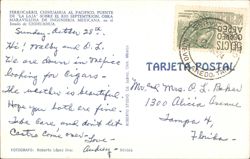 FERROCARRIL CHIHUAHUA AL PACIFICO. PUENTE
DE "LA LAJA" SOBRE EL RIO SEPTENTRION. OBRA
MARAVILLOSA DE INGENIERIA MEXICANA, en el
Estado de CHIHUAHUA.
Sunday October 28th.
Hi! Melby and O. L.
We are down in Mexico
looking for Cigars.
The weather is beautiful.
Hope you both are fine.
Take care and don't let
Castro come over.
Love
Audrey
FOTOGRAFO: Roberto López Díaz.
CORREO
TARJETA POSTAL
Mr. and Mrs. O. L. Baker
1300 Alicia Avenue
Tampa 4,
Florida